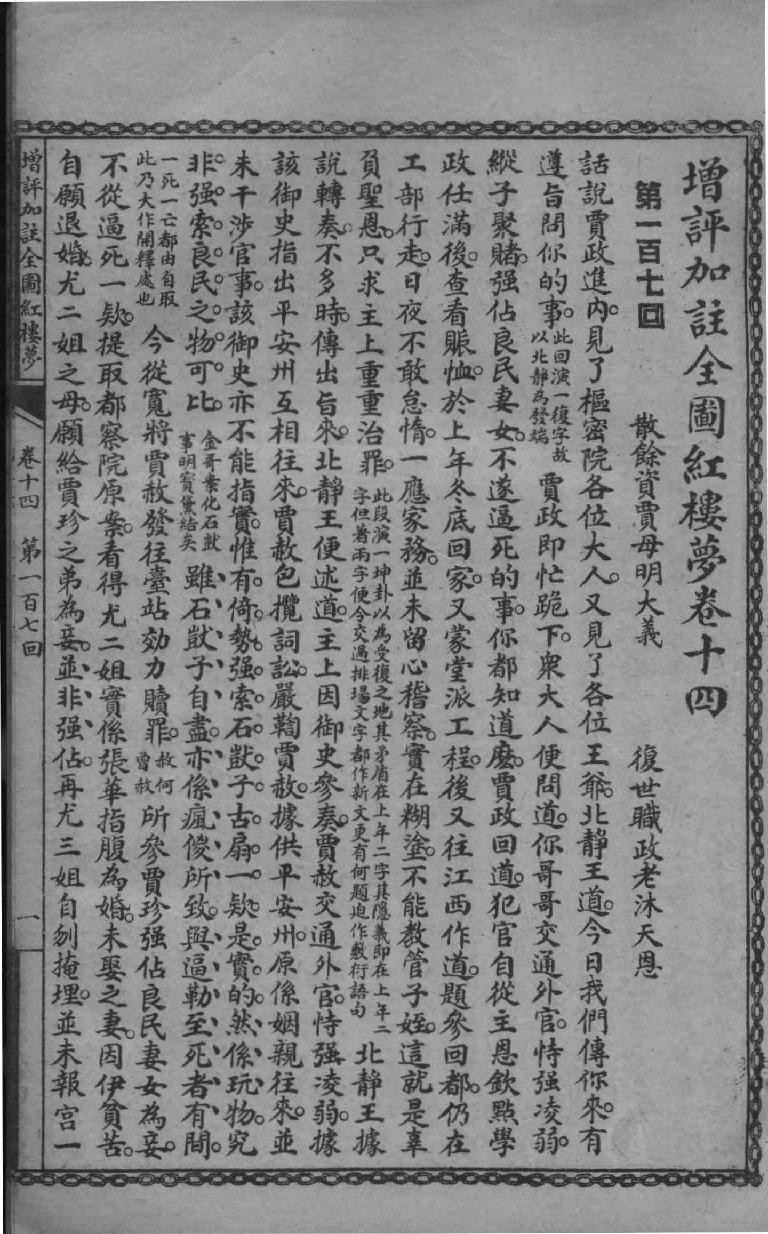 增評加註全圖紅樓夢卷十四
第一百七回　散餘資賈母明大義　復世職政老沐天恩
話說賈政進內。見了樞密院各位大人。又見了各位王爺。北靜王道。今日我們傳你來。有
遵旨問你的事。此回演一復字故以北靜為發端賈政即忙跪下。衆大人便問道。你哥哥交通外官。恃强凌弱。
縱子聚賭。强佔良民妻女。不遂逼死的事。你都知道麽。賈政回道。犯官自從主恩欽點學
政任滿後。查看賑恤。於上年冬底回家。又蒙堂派工程。後又往江西作道。題參回都。仍在
工部行走。日夜不敢怠惰。一應家務。並未留心稽察。實在糊塗。不能教管子姪。這就是辜
負聖恩。只求主上重重治罪。此段演一坤卦以為受復之地其矛盾在上年二字其隱義即在上年二字但着兩字便令交過排場文字都作新文更有何題迫作敷衍語句北靜王據
說轉奏。不多時傳出旨來。北靜王便述道。主上因御史參奏。賈赦交通外官。恃强凌弱。據
該御史指出平安州互相往來。賈赦包攬詞訟。嚴鞫賈赦。據供平安州。原係姻親往來。並
未干涉官事。該御史亦不能指實。惟有倚勢强索石獃子古扇。一欵是實的。然係玩物。究
非强索良民之物可比。金哥案化石獃事明寶黛結矣雖石獃子自盡。亦係瘋傻所致。與逼勒至死者有間。
一死一亡都由自取此乃大作開釋處也今從寬將賈赦發往臺站効力贖罪。赦何曾赦所參賈珍强佔良民妻女為妾。
不從逼死一欵。提取都察院原案。看得尤二姐實係張華指腹為婚。未娶之妻。因伊貧苦。
自願退婚。尤二姐之母。願給賈珍之弟為妾。並非强佔。再尤三姐自刎掩埋。並未報官一
增評加註全圖紅樓夢　卷十四　第一百七回　一